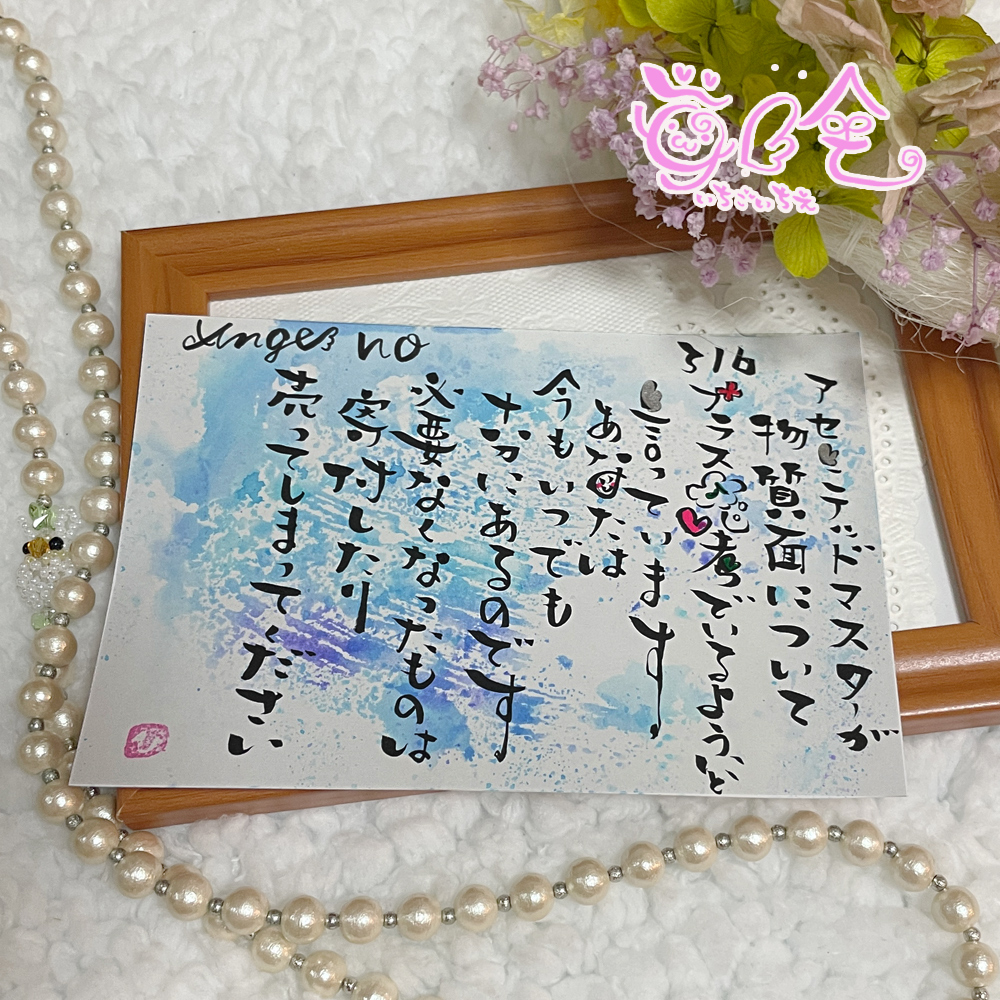 いちごいちえ
Angel no
316
アセンデッドマスターが
物質面について
プラス思考でいるようにと
言っています
あ母たは
今もいつでも
十分にあるのです
必要なくなったものは
寄付したり
売ってしまってください